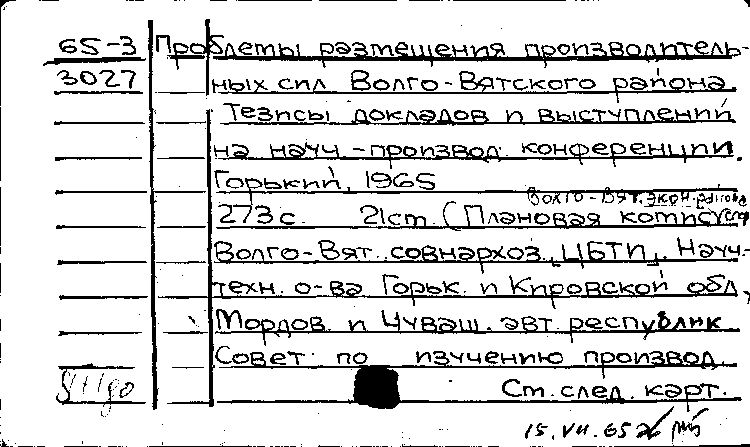 65-3 Проблемы размещения производитель-
3027 ных сил Волго-Вятского района.
Тезисы докладов и выступлений
на науч.-производ. конференции.
Горький, 1965
Волго-Вят. экон. района
273 с. 21 cm. (Плановая комис
Волго-Вят. совнархоз, ЦБТИ, Науч.-
техн. о-ва Горьк. и Кировской обл.,
Мордов. и Чуваш. авт. республик
Совет по изучению производ.
См. след. карт.
15.VII.65